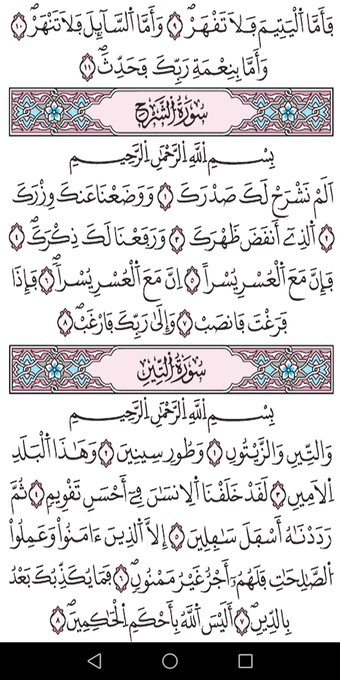 فَأَمَّا اَ۬لْيَتِيمَ فَلَا تَقْهَرْۖ ۹ وَأَمَّا اَ۬لسَّآئِلَ فَلَا تَنْهَرْۖ ١٠
وَأَمَّا بِنِعْمَةِ رَبِّكَ فَحَدِّثْۖ ١١
سُورَةُ الشَّرْحِ
بِسْمِ اِ۬للَّهِ اِ۬لرَّحْمَٰنِ اِ۬لرَّحِيمِ
اَلَمْ نَشْرَحْ لَكَ صَدْرَكَ ١ وَوَضَعْنَا عَنكَ وِزْرَكَ
٢ اَ۬لذِے أَنقَضَ ظَهْرَكَ ٣ وَرَفَعْنَا لَكَ ذِكْرَكَۖ ٤
فَإِنَّ مَعَ اَ۬لْعُسْرِ يُسْراً ٥ اِنَّ مَعَ اَ۬لْعُسْرِ يُسْراًۖ ٦ فَإِذَا
فَرَغْتَ فَانصَبْ ٧ وَإِلَىٰ رَبِّكَ فَارْغَبۖ ٨
سُورَةُ التِّينِ
بِسْمِ اِ۬للَّهِ اِ۬لرَّحْمَٰنِ اِ۬لرَّحِيمِ
وَالتِّينِ وَالزَّيْتُونِ ١ وَطُورِ سِينِينَ ٢ وَهَٰذَا اَ۬لْبَلَدِ
اِ۬لَامِينِ ٣ لَقَدْ خَلَقْنَا اَ۬لِانسَٰنَ فِےٓ أَحْسَنِ تَقْوِيمٖۖ ٤ ثُمَّ
رَدَدْنَٰهُ أَسْفَلَ سَٰفِلِينَ ٥ إِلَّا اَ۬لذِينَ ءَامَنُواْ وَعَمِلُواْ
اُ۬لصَّٰلِحَٰتِ فَلَهُمُۥٓ أَجْرٌ غَيْرُ مَمْنُونٖۖ ٦ فَمَا يُكَذِّبُكَ بَعْدُ
بِالدِّينِۖ ٧ أَلَيْسَ اَ۬للَّهُ بِأَحْكَمِ اِ۬لْحَٰكِمِينَۖ ٨